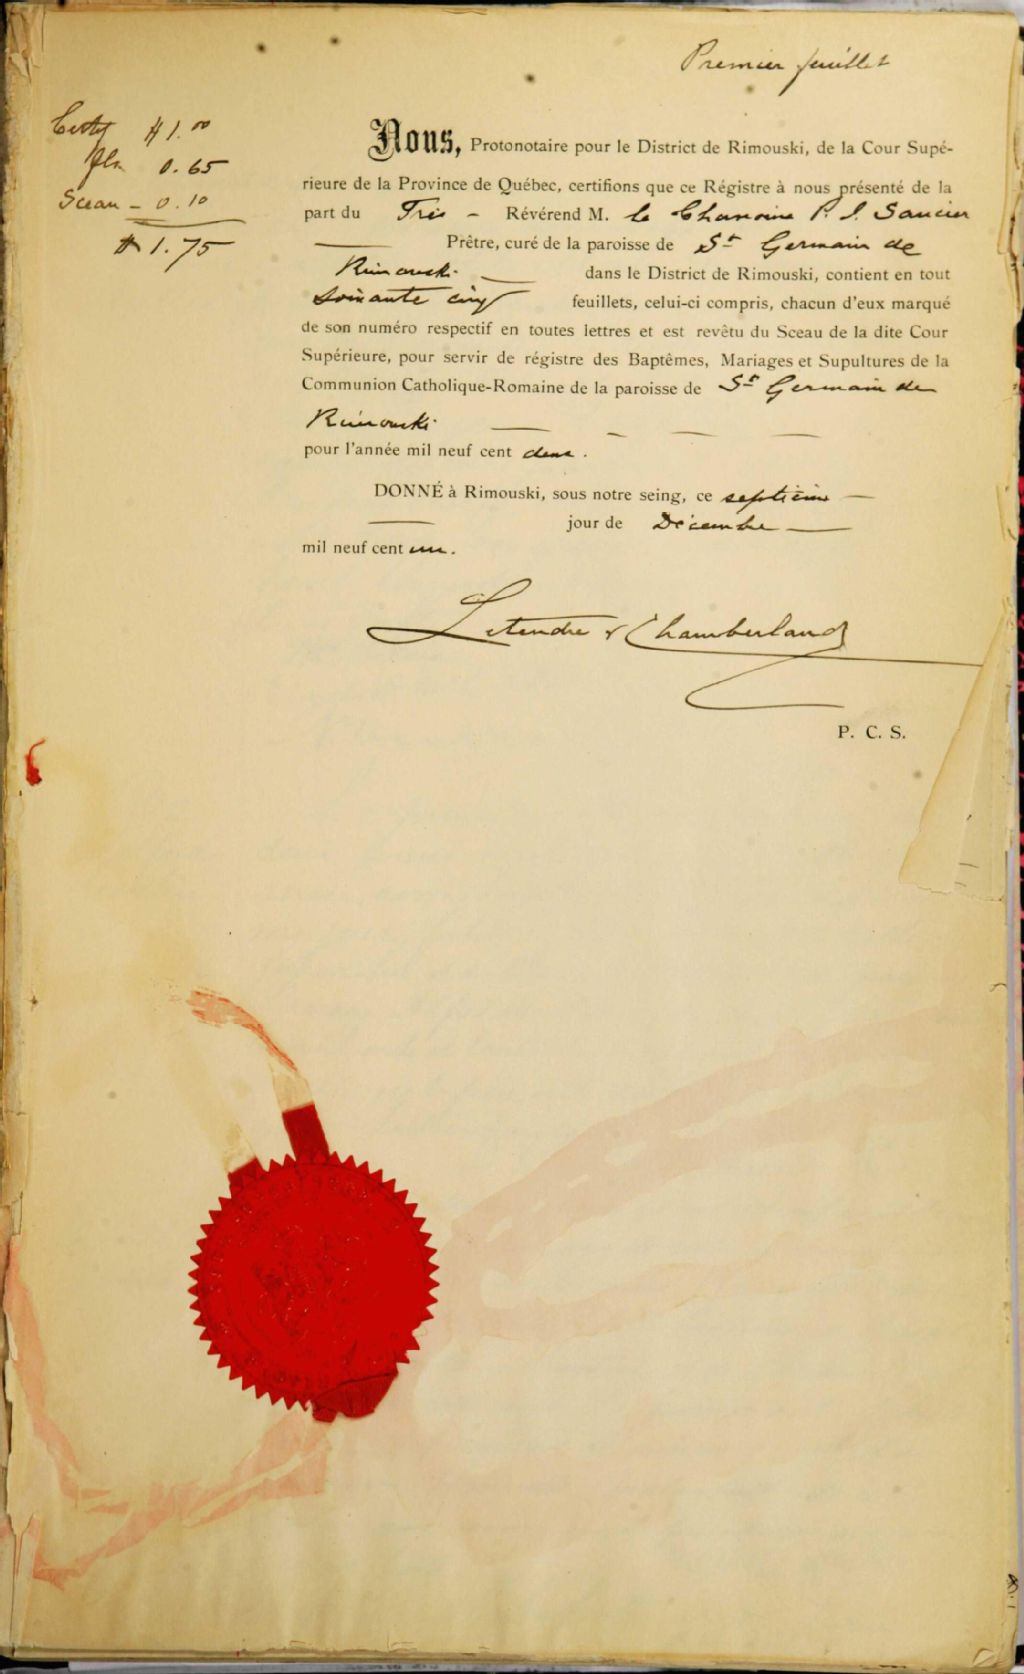 Premier feuillet
Certif $1.00
flts 0.65
Sceau - 0.10
$1.75
Nous, Protonotaire pour le District de Rimouski, de la Cour Supé-
rieure de la Province de Québec, certifions que ce Régistre à nous présenté de la
part du Très - Révérend M. le Chanoine P. J. Saucier
Prêtre, curé de la paroisse de St Germain de
Rimouski - dans le District de Rimouski, contient en tout
soixante cinq feuillets, celui-ci compris, chacun d'eux marqué
de son numéro respectif en toutes lettres et est revêtu du Sceau de la dite Cour
Supérieure, pour servir de régistre des Baptêmes, Mariages et Supultures de la
Communion Catholique-Romaine de la paroisse de St Germain de
Rimouski
pour l'année mil neuf cent deux.
DONNÉ à Rimouski, sous notre seing, ce septième
jour de Décembre
mil neuf cent un.
Letendre & Chamberland
P. C. S.